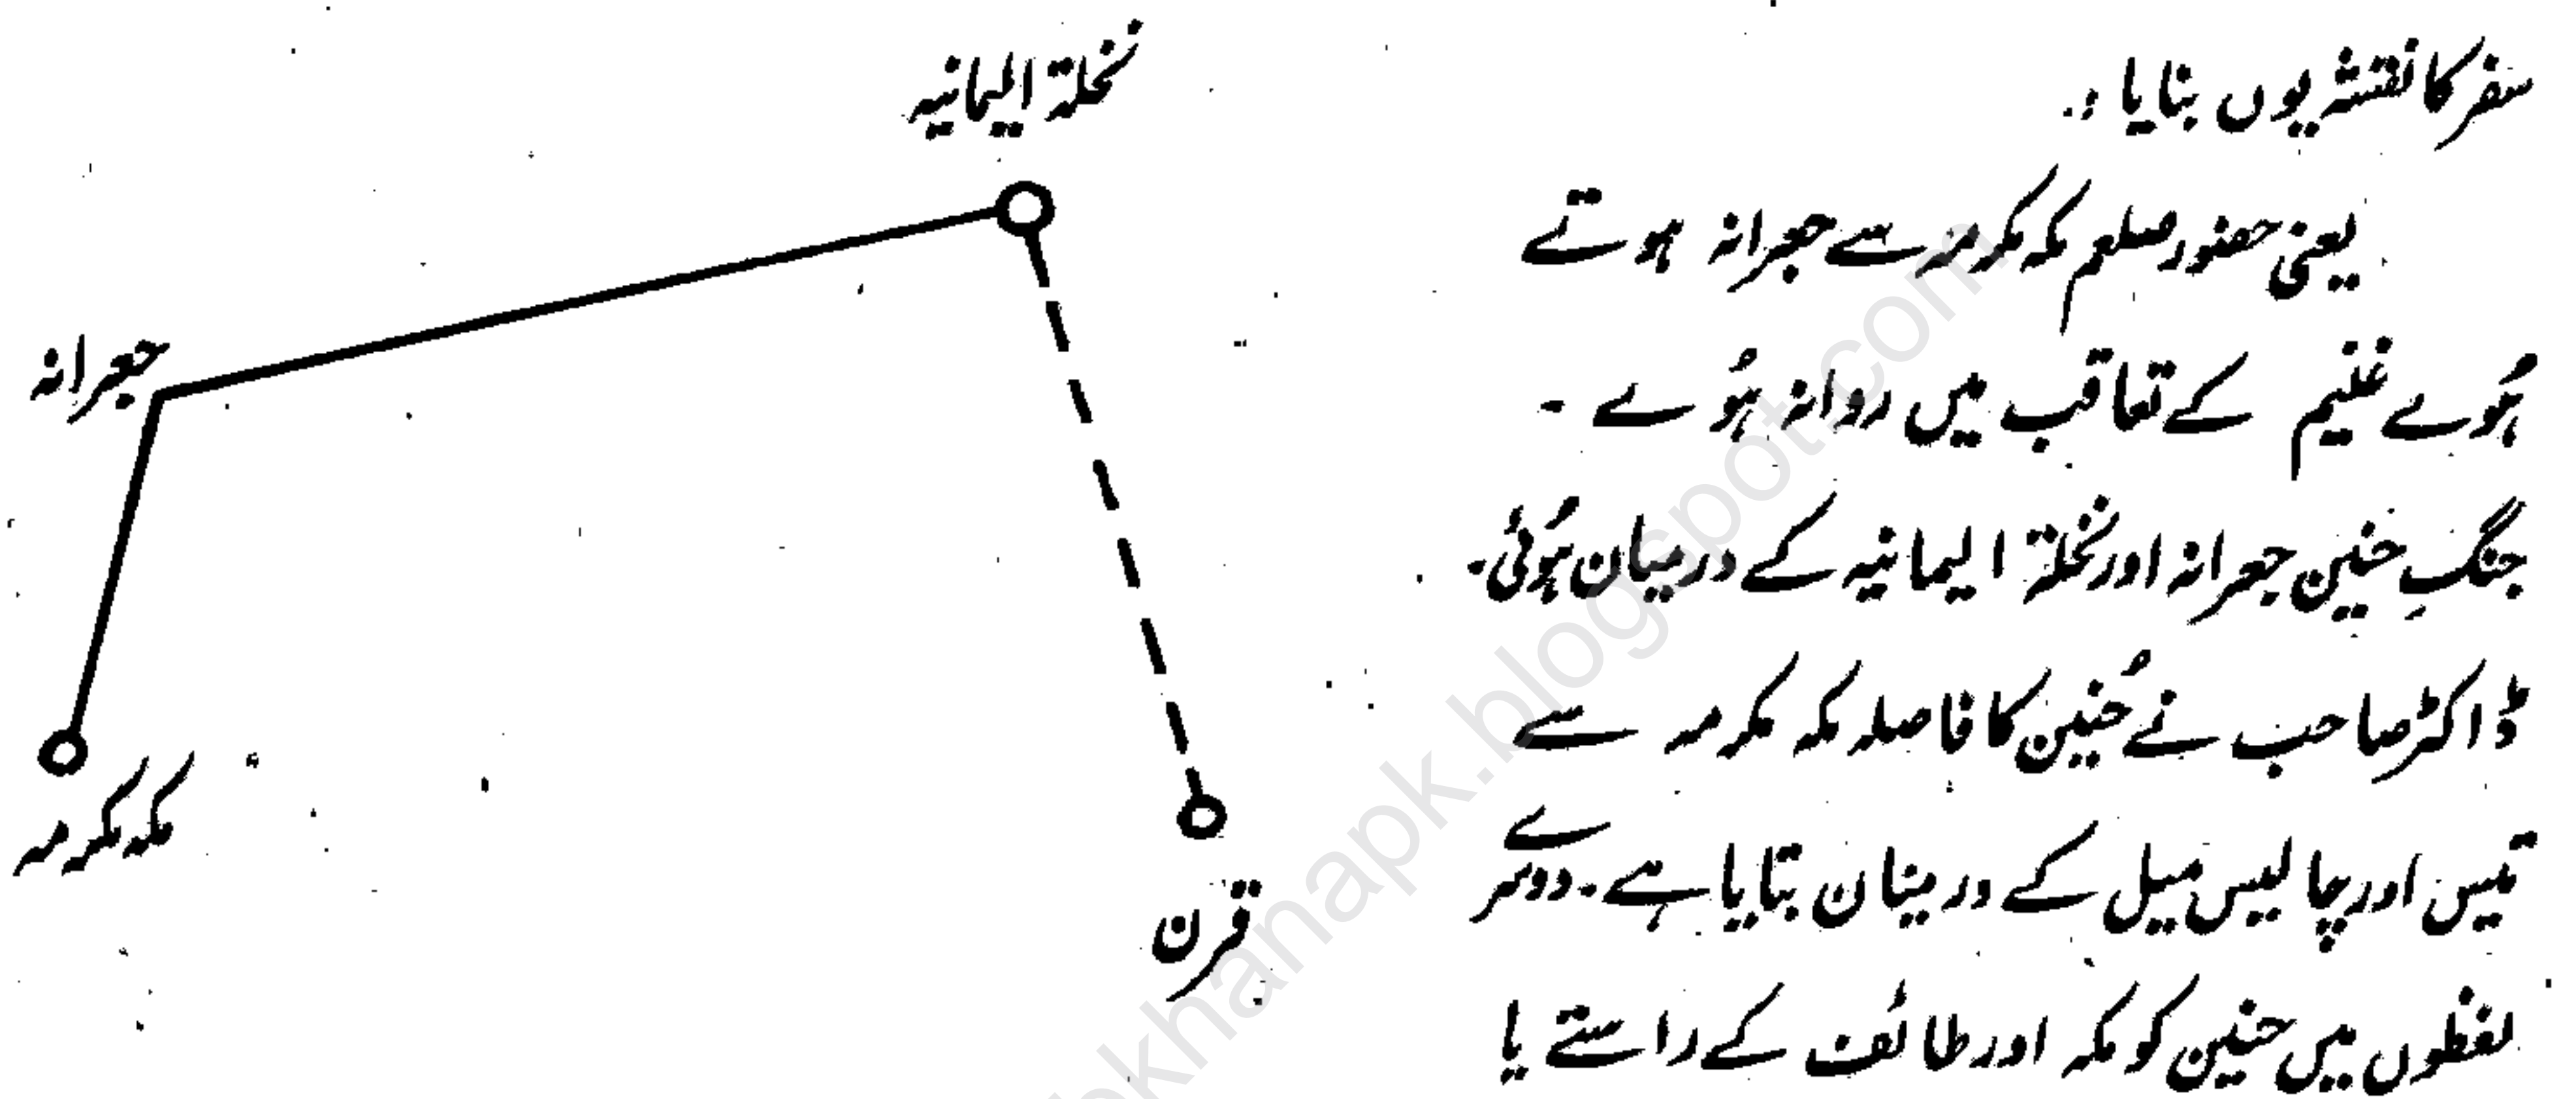 سفر کا نقشہ یوں بنایا :.
یعنی حضور صلعم مکہ مکرمہ سے جعرانہ ہوتے
ہُوے غنیم کے تعاقب میں روانہ ہُوے ۔
جنگِ حنین جعرانہ اور نخلۃ الیمانیہ کے درمیان ہُوئی۔
ڈاکٹر صاحب نے حُنین کا فاصلہ مکہ مکرمہ سے
تیس اور چالیس میل کے درمیان بتایا ہے۔ دوسرے
لفظوں میں حنین کو مکہ اور طائف کے راستے یا
نخلۃ الیمانیہ
جعرانہ
مکہ مکرمہ
قرن
bkhanapk.blogspot.com